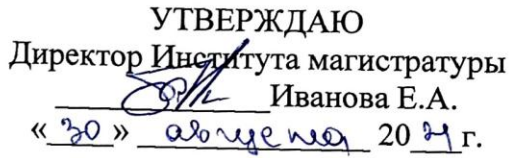 УТВЕРЖДАЮ
Директор Института магистратуры
Иванова Е.А.
«30» августа 2021 г.